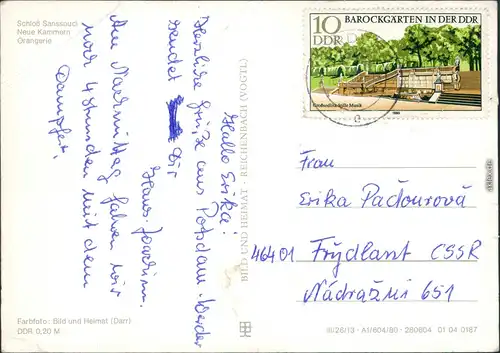 Schloß Sanssouci
Neue Kammern
Orangerie
Hallo Erika!
Herzliche Grüße aus Potsdam-Werder
sendet Dir
Hans-Joachim.
Am Nachmittag fahren wir
noch 4 Stunden mit dem
Dampfer.
Farbfoto: Bild und Heimat (Darr)
DDR 0,20 M
BILD UND HEIMAT · REICHENBACH (VOGTL)
10
DDR
BAROCKGÄRTEN IN DER DDR
Großsedlitz-Stille Musik
1980
Frau
Erika Paďourová
46401 Frýdlant ČSSR
Nádražní 651
III/26/13 · A1/604/80 · 280604 01 04 0187